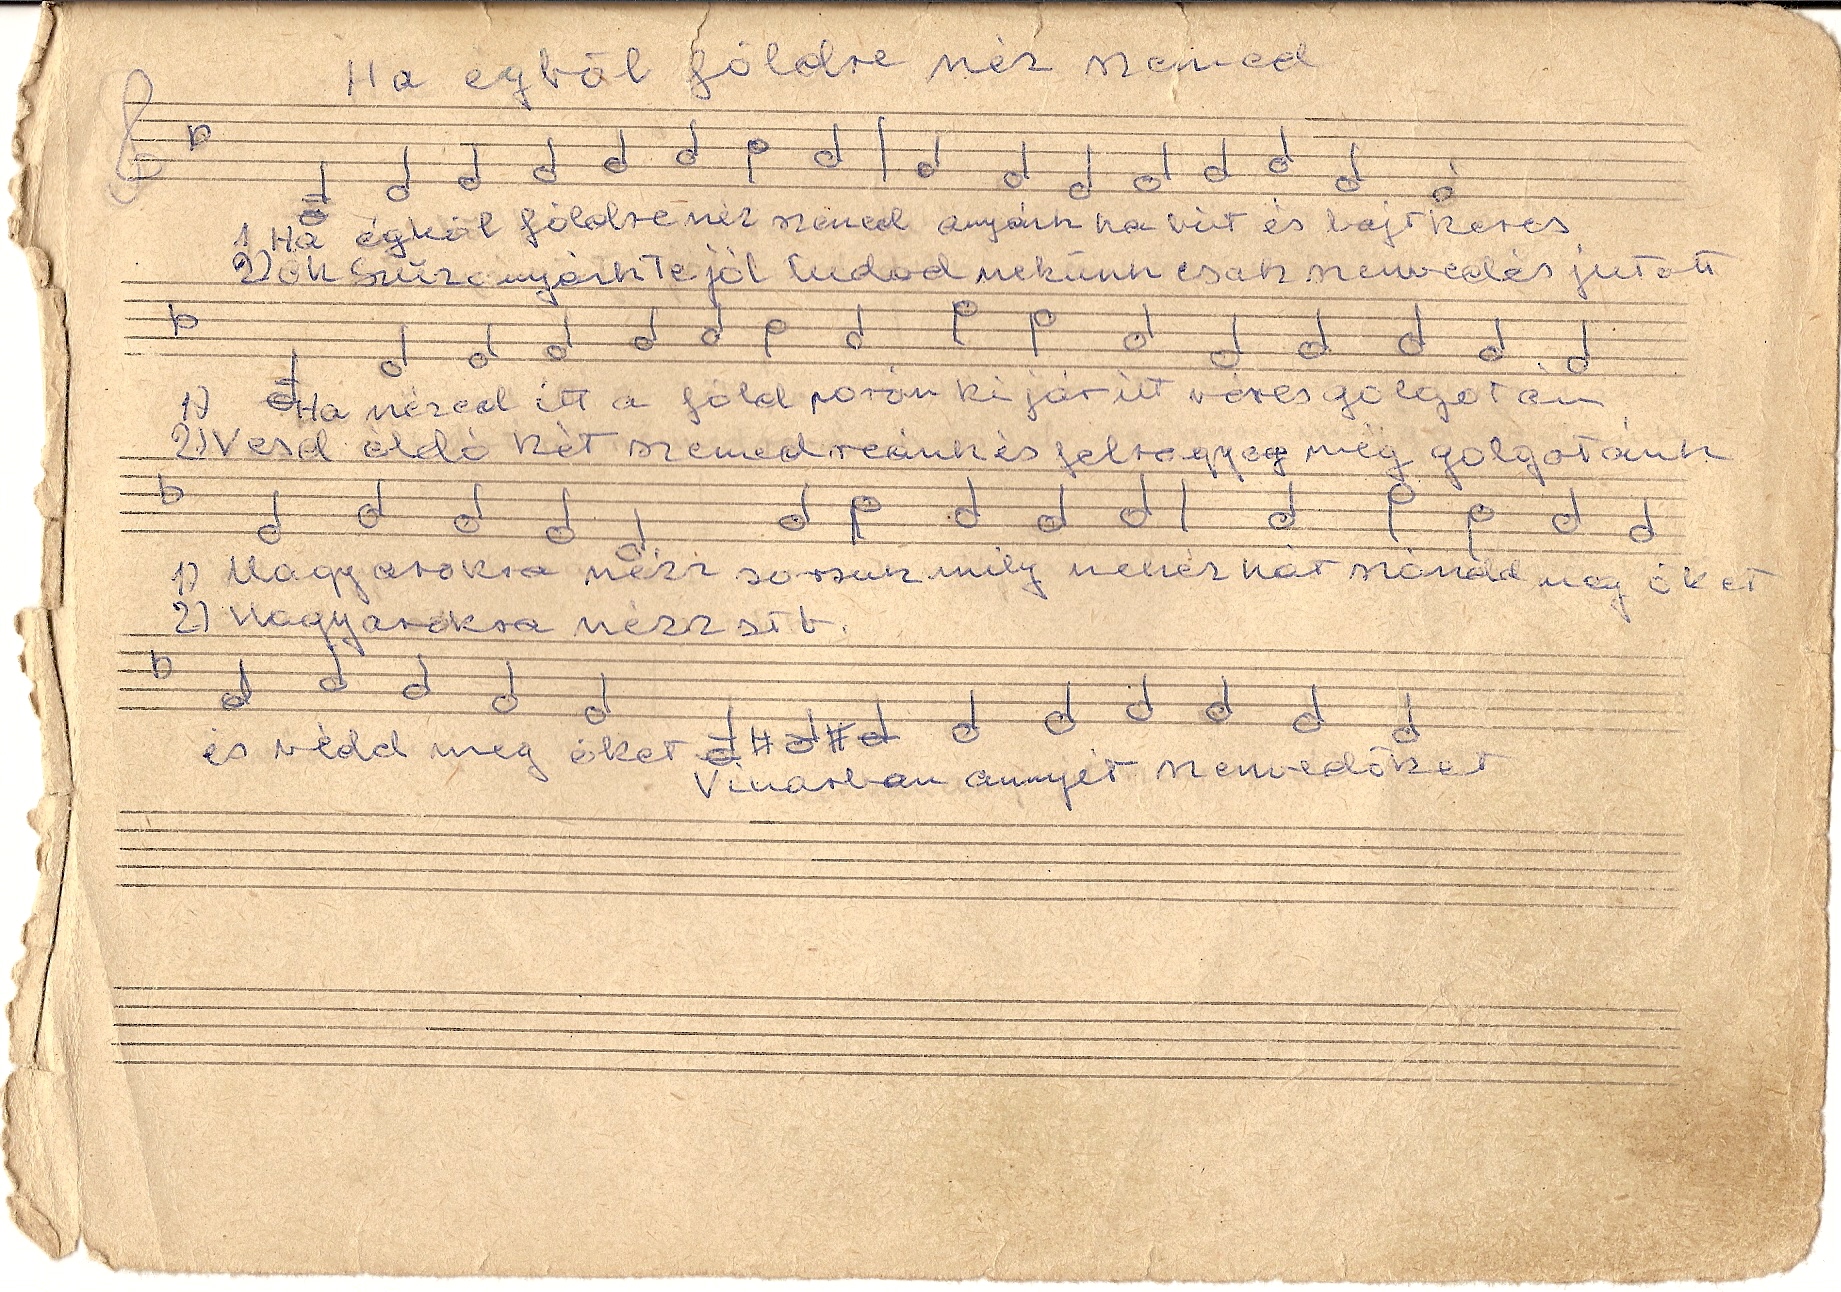 Ha égből földre néz szemed
1 Ha égből földre néz szemed anyánk ha bút és bajt keres
2) óh Szűz anyánk Te jól tudod nekünk csak szenvedés jutott
1) Ha nézed itt a föld porán ki jár itt véres golgotán
2) Vesd áldó két szemed reánk és golgotánk
1) Magyarokra nézz sorsuk mily nehéz hát szánd meg őket
2) Magyarokra nézz stb.
és védd meg őket
Viharban annyit szenvedőket